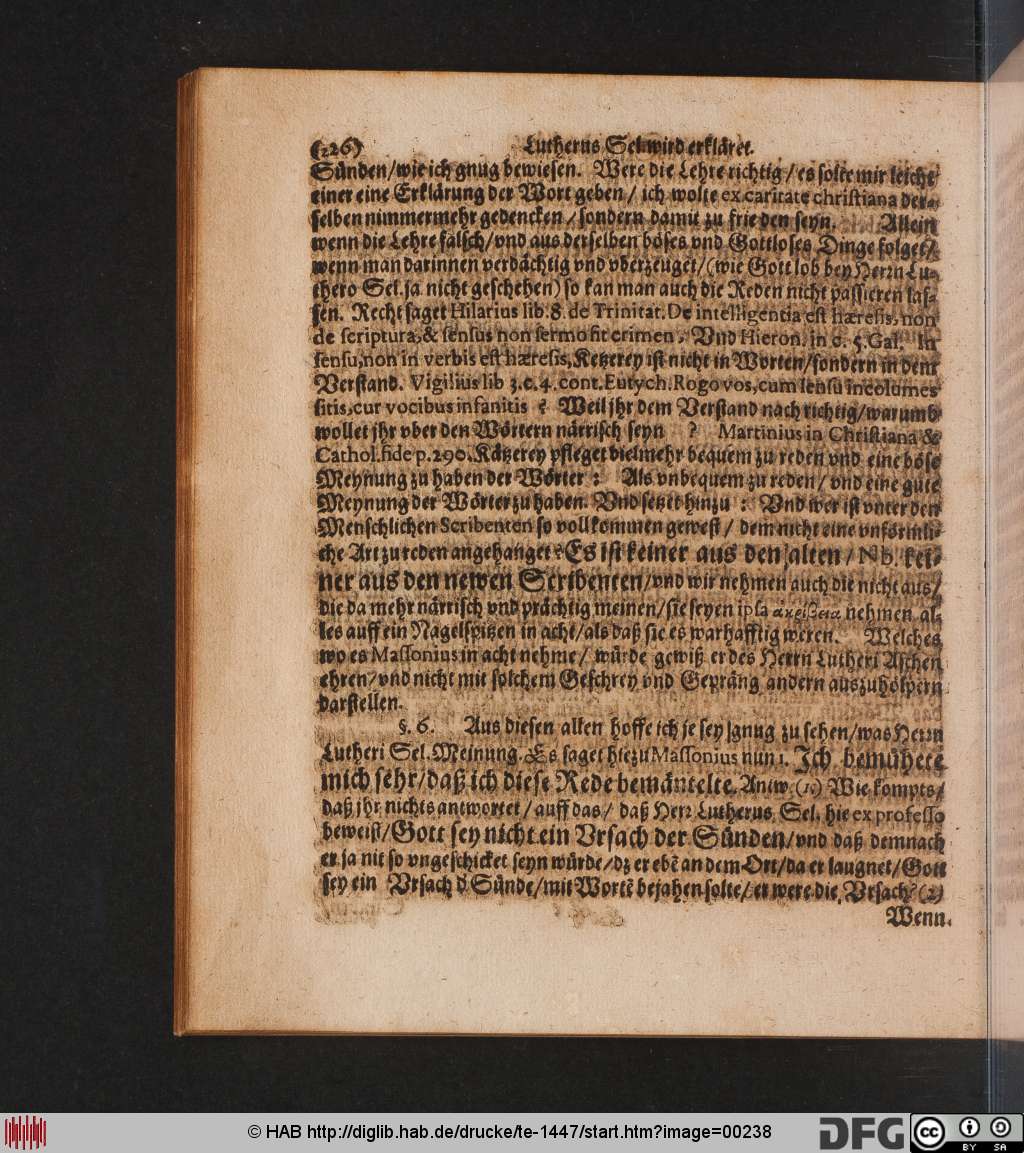 (226) Lutherus Sel. wird erkläret.
Sünden/wie ich gnug bewiesen. Were die Lehre richtig/es solte mir leicht
einer eine Erklärung der Wort geben/ ich wolte ex caritate christiana der-
selben nimmermehr gedencken/sondern damit zu frieden seyn. Allein
wenn die Lehre falsch/vnd aus derselben böses vnd Gottloses Dinge folget/
wenn man darinnen verdächtig vnd vberzeuget/(wie Gott lob bey Herrn Lu-
thero Sel. ja nicht geschehen) so kan man auch die Reden nicht passieren las-
sen. Recht saget Hilarius lib. 8. de Trinitat. De intelligentia est hæresis, non
de scriptura, & sensus non sermo fit crimen, Vnd Hieron. in c. 5. Gal. In
sensu, non in verbis est hæresis, Ketzerey ist nicht in Worten/sondern in dem
Verstand. Vigilius lib 3. c. 4. cont. Eutych. Rogo vos, cum sensu incolumes
sitis, cur vocibus infanitis ? Weil jhr dem Verstand nach richtig/warumb
wollet jhr vber den Wörtern närrisch seyn ? Martinius in Christiana &
Cathol. fide p. 290. Kätzerey pfleget vielmehr bequem zu reden vnd eine böse
Meynung zu haben der Wörter : Als vnbequem zu reden/ vnd eine gute
Meynung der Wörter zu haben. Vnd setzet hinzu : Vnd wer ist vnter den
Menschlichen Scribenten so vollkommen gewest/ dem nicht eine vnförmli-
che Art zu reden angehanget? Es ist keiner aus den alten/ Nb. kei-
ner aus den newen Scribenten/vnd wir nehmen auch die nicht aus/
die da mehr närrisch vnd prächtig meinen/sie seyen ipsa ἀκρίβεια nehmen al-
les auff ein Nagelspitzen in acht/als daß sie es warhafftig weren. Welches
wo es Massonius in acht nehme/ würde gewiß er des Herrn Lutheri Aschen
ehren/vnd nicht mit solchem Geschrey vnd Gepräng andern auszuhölpern
darstellen.
§. 6. Aus diesen allen hoffe ich je sey gnug zu sehen/was Herrn
Lutheri Sel. Meinung. Es saget hiezu Massonius nun 1. Ich bemühete
mich sehr/daß ich diese Rede bemäntelte. Antw. (1.) Wie kompts/
daß jhr nichts antwortet/auff das/ daß Herr Lutherus Sel. hie ex professo
beweist/Gott sey nicht ein Vrsach der Sünden/vnd daß demnach
er ja nit so vngeschicket seyn würde/dz er ebẽ an dem Ort/da er laugnet/Gott
sey ein Vrsach d' Sünde/mit Wortẽ bejahen solte/er were die Vrsach? (2)
Wenn.
© HAB http://diglib.hab.de/drucke/te-1447/start.htm?image=00238
DFG
cc BY SA